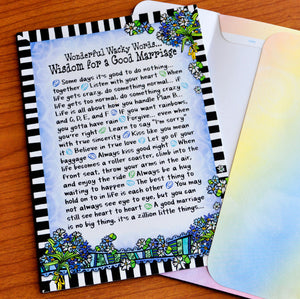 Wonderful Wacky Words...
Wisdom for a Good Marriage
Some days it's good to do nothing...
together Listen with your heart When
life gets crazy, do something normal... if
life gets too normal, do something crazy
Life is all about how you handle Plan B...
and C, D, E, and F If you want rainbows,
you gotta have rain Forgive... even when
you're right Learn to say "I'm sorry"
with true sincerity Kiss like you mean
it Believe in true love Let go of your
baggage Always kiss good night When
life becomes a roller coaster, climb into the
front seat, throw your arms in the air,
and enjoy the ride Always be a hug
waiting to happen The best thing to
hold on to in life is each other You may
not always see eye to eye, but you can
still see heart to heart A good marriage
is no big thing, it's a zillion little things...